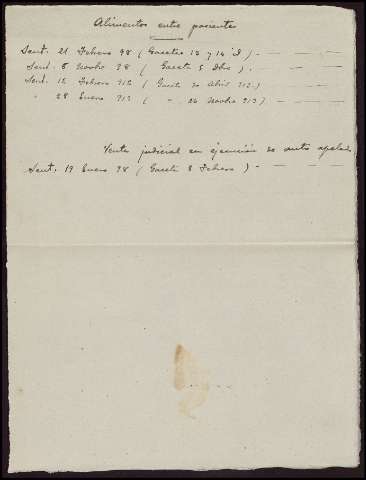 Alimentos entre parientes
Sent. 21 Febrero 98 (Gacetas 13 y 14 d) . — — — —
Sent. 5 Novbe 98 ( Gaceta 5 Dbre ) — — — —
Sent. 12 Febrero 912 ( Gaceta 20 Abril 912.) — — —
" 28 Enero 913 ( " . 26 Novbre 913 ) — — —
Venta judicial en ejecución de auto apelado
Sent. 19 Enero 98 ( Gaceta 8 Febrero ) — — — —